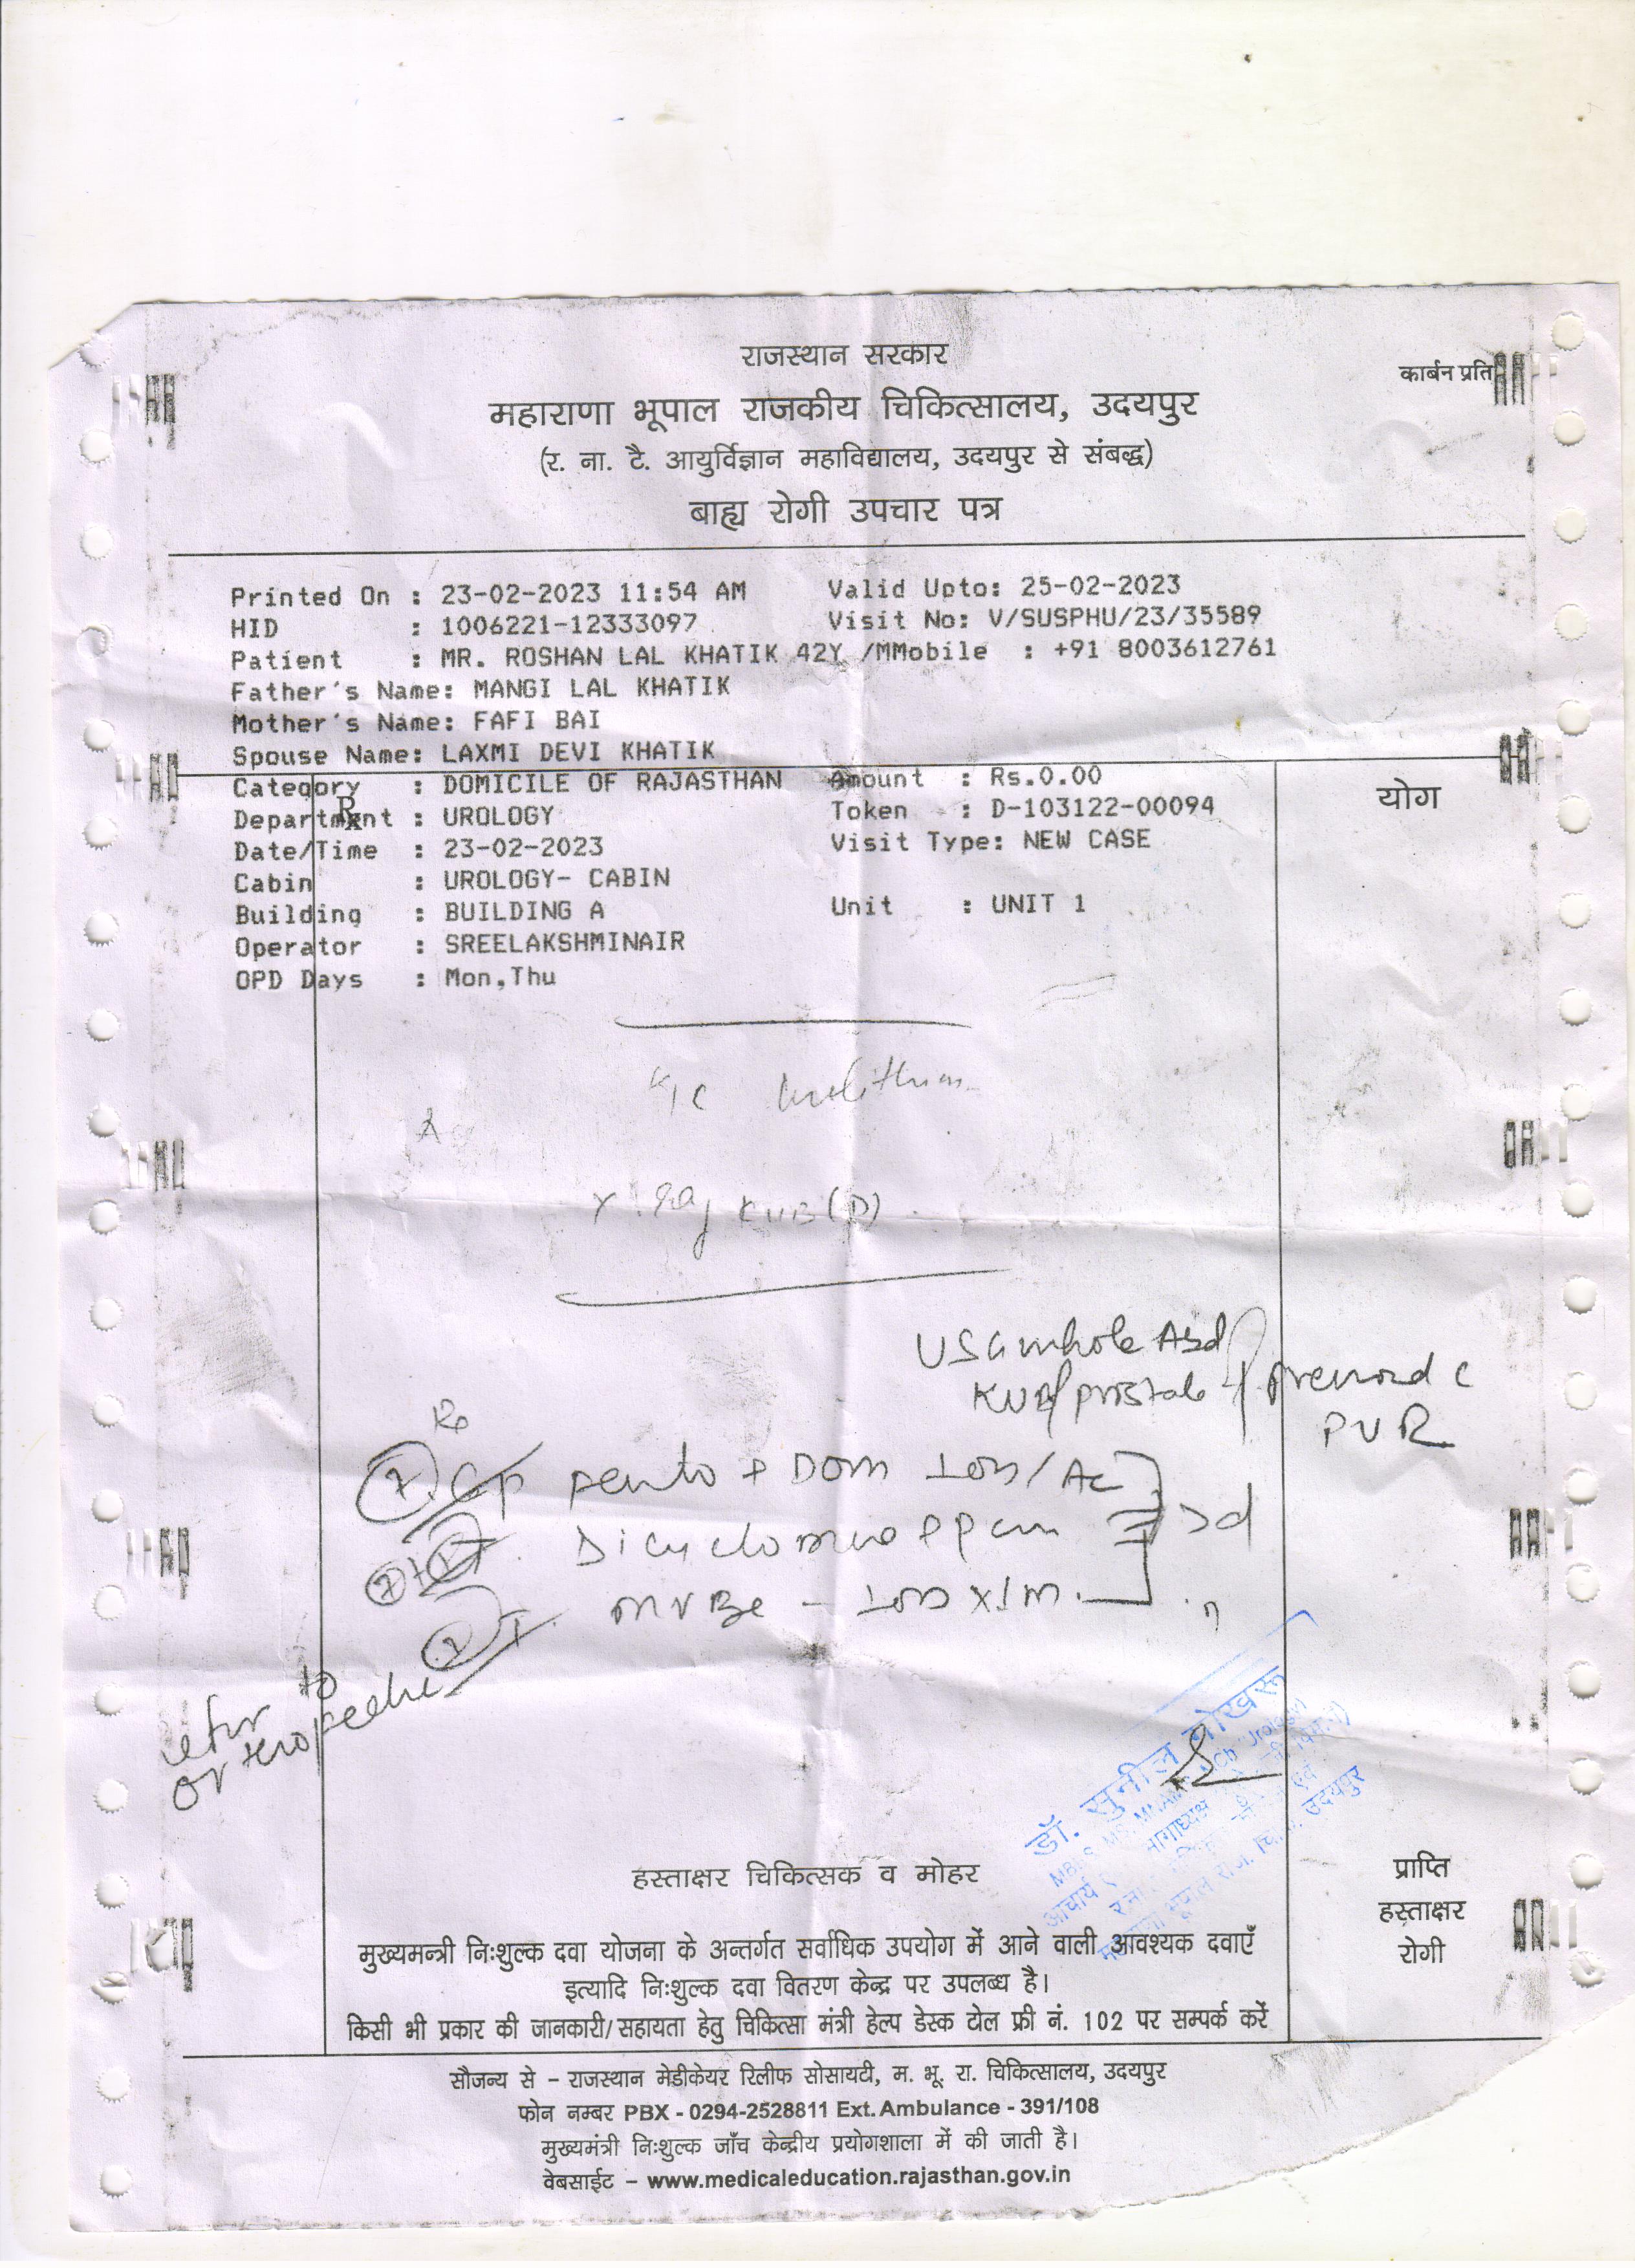 राजस्थान सरकार
कार्बन प्रति
महाराणा भूपाल राजकीय चिकित्सालय, उदयपुर
(र. ना. टै. आयुर्विज्ञान महाविद्यालय, उदयपुर से संबद्ध)
बाह्य रोगी उपचार पत्र
Printed On : 23-02-2023 11:54 AM Valid Upto: 25-02-2023
HID : 1006221-12333097 Visit No: V/SUSPHU/23/35589
Patient : MR. ROSHAN LAL KHATIK 42Y /MMobile : +91 8003612761
Father's Name: MANGI LAL KHATIK
Mother's Name: FAFI BAI
Spouse Name: LAXMI DEVI KHATIK
Category : DOMICILE OF RAJASTHAN Amount : Rs.0.00
योग
Rx
Department : UROLOGY Token : D-103122-00094
Date/Time : 23-02-2023 Visit Type: NEW CASE
Cabin : UROLOGY- CABIN
Building : BUILDING A Unit : UNIT 1
Operator : SREELAKSHMINAIR
OPD Days : Mon,Thu
X Ray KUB (P)
USG whole Abd
KUB/prostate / prevoid c
PVR
Panto + DOM 1OD/AC
Dicyclomine + pcm
MVBC - 1OD X 1M
to
डॉ. सुनील गोखरू
हस्ताक्षर चिकित्सक व मोहर
प्राप्ति
हस्ताक्षर
रोगी
मुख्यमन्त्री निःशुल्क दवा योजना के अन्तर्गत सर्वाधिक उपयोग में आने वाली आवश्यक दवाएँ
इत्यादि निःशुल्क दवा वितरण केन्द्र पर उपलब्ध है।
किसी भी प्रकार की जानकारी/सहायता हेतु चिकित्सा मंत्री हेल्प डेस्क टोल फ्री नं. 102 पर सम्पर्क करें
सौजन्य से – राजस्थान मेडीकेयर रिलीफ सोसायटी, म. भू. रा. चिकित्सालय, उदयपुर
फोन नम्बर PBX - 0294-2528811 Ext. Ambulance - 391/108
मुख्यमंत्री निःशुल्क जाँच केन्द्रीय प्रयोगशाला में की जाती है।
वेबसाईट – www.medicaleducation.rajasthan.gov.in